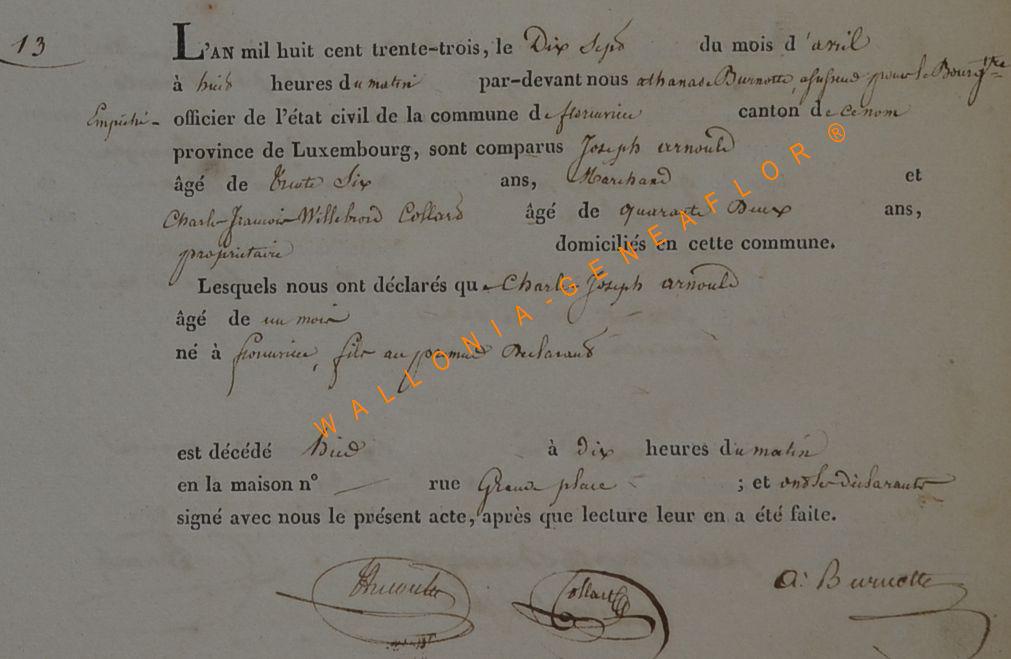 13
L'AN mil huit cent trente-trois, le Dix Sept du mois d'avril
à huit heures du matin par-devant nous athanase Burnotte, assesseur pour le Bourgtre
Empêché - officier de l'état civil de la commune de florenville canton de
province de Luxembourg, sont comparus Joseph arnould
âgé de trente Six ans, Marchand et
Charles françois Willebrord Collard âgé de quarante Deux ans,
propriétaire domiciliés en cette commune.
Lesquels nous ont déclarés que Charles Joseph arnould
âgé de un mois
né à florenville, fils au premier Déclarant
est décédé hier à Dix heures du matin
en la maison nº — rue Grande place ; et ont les déclarants
signé avec nous le présent acte, après que lecture leur en a été faite.
Arnould Collard A: Burnotte
WALLONIA-GENEAFLOR ®